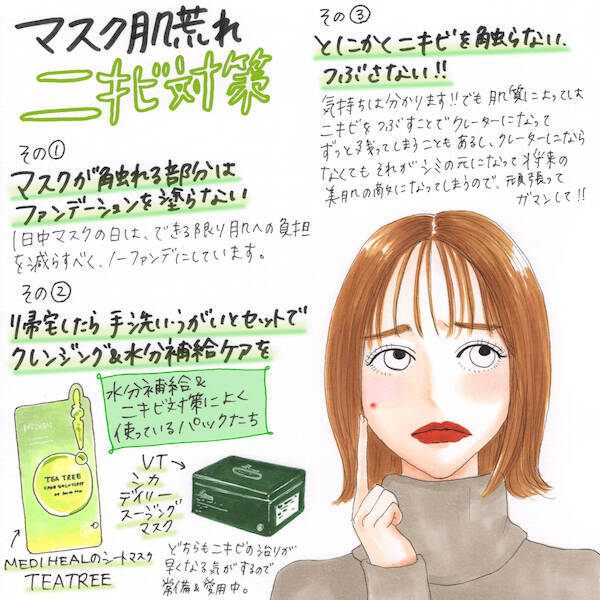 マスク肌荒れ
ニキビ対策
その①
マスクが触れる部分は
ファンデーションを塗らない
1日中マスクの日は、できる限り肌への負担
を減らすべく、ノーファンデにしています。
その②
帰宅したら手洗い・うがいとセットで
クレンジング&水分補給ケアを
水分補給&
ニキビ対策によく
使っているパックたち
TEA TREE
MEDIHEALのシートマスク
TEATREE
VT
シカ
デイリー
スージング
マスク
どちらもニキビの治りが
早くなる気がするので
常備&愛用中。
その③
とにかくニキビを触らない、
つぶさない!!
気持ちは分かります!!でも肌質によっては
ニキビをつぶすことでクレーターになって
ずっと残ってしまうこともあるし、クレーターになら
なくてもそれがシミの元になって将来の
美肌の敵になってしまうので、頑張って
ガマンして!!